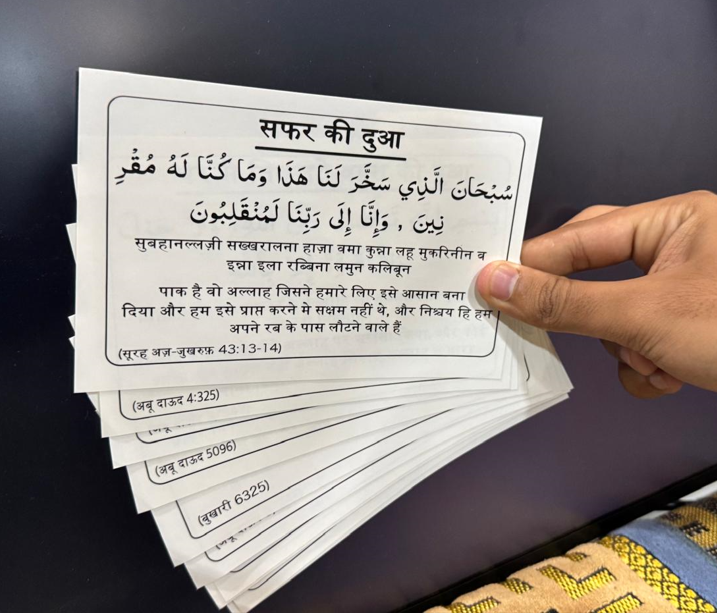 सफर की दुआ
سُبْحَانَ الَّذِي سَخَّرَ لَنَا هَذَا وَمَا كُنَّا لَهُ مُقْرِ
نِينَ , وَإِنَّا إِلَى رَبِّنَا لَمُنْقَلِبُونَ
सुबहानल्लज़ी सख्खरालना हाज़ा वमा कुन्ना लहू मुकरिनीन व
इन्ना इला रब्बिना लमुन कलिबून
पाक है वो अल्लाह जिसने हमारे लिए इसे आसान बना
दिया और हम इसे प्राप्त करने मे सक्षम नहीं थे, और निश्चय हि हम
अपने रब के पास लौटने वाले हैं
(सूरह अज़-जुखरुफ़ 43:13-14)
(अबू दाऊद 4:325)
(अबू दाऊद 5096)
(बुखारी 6325)